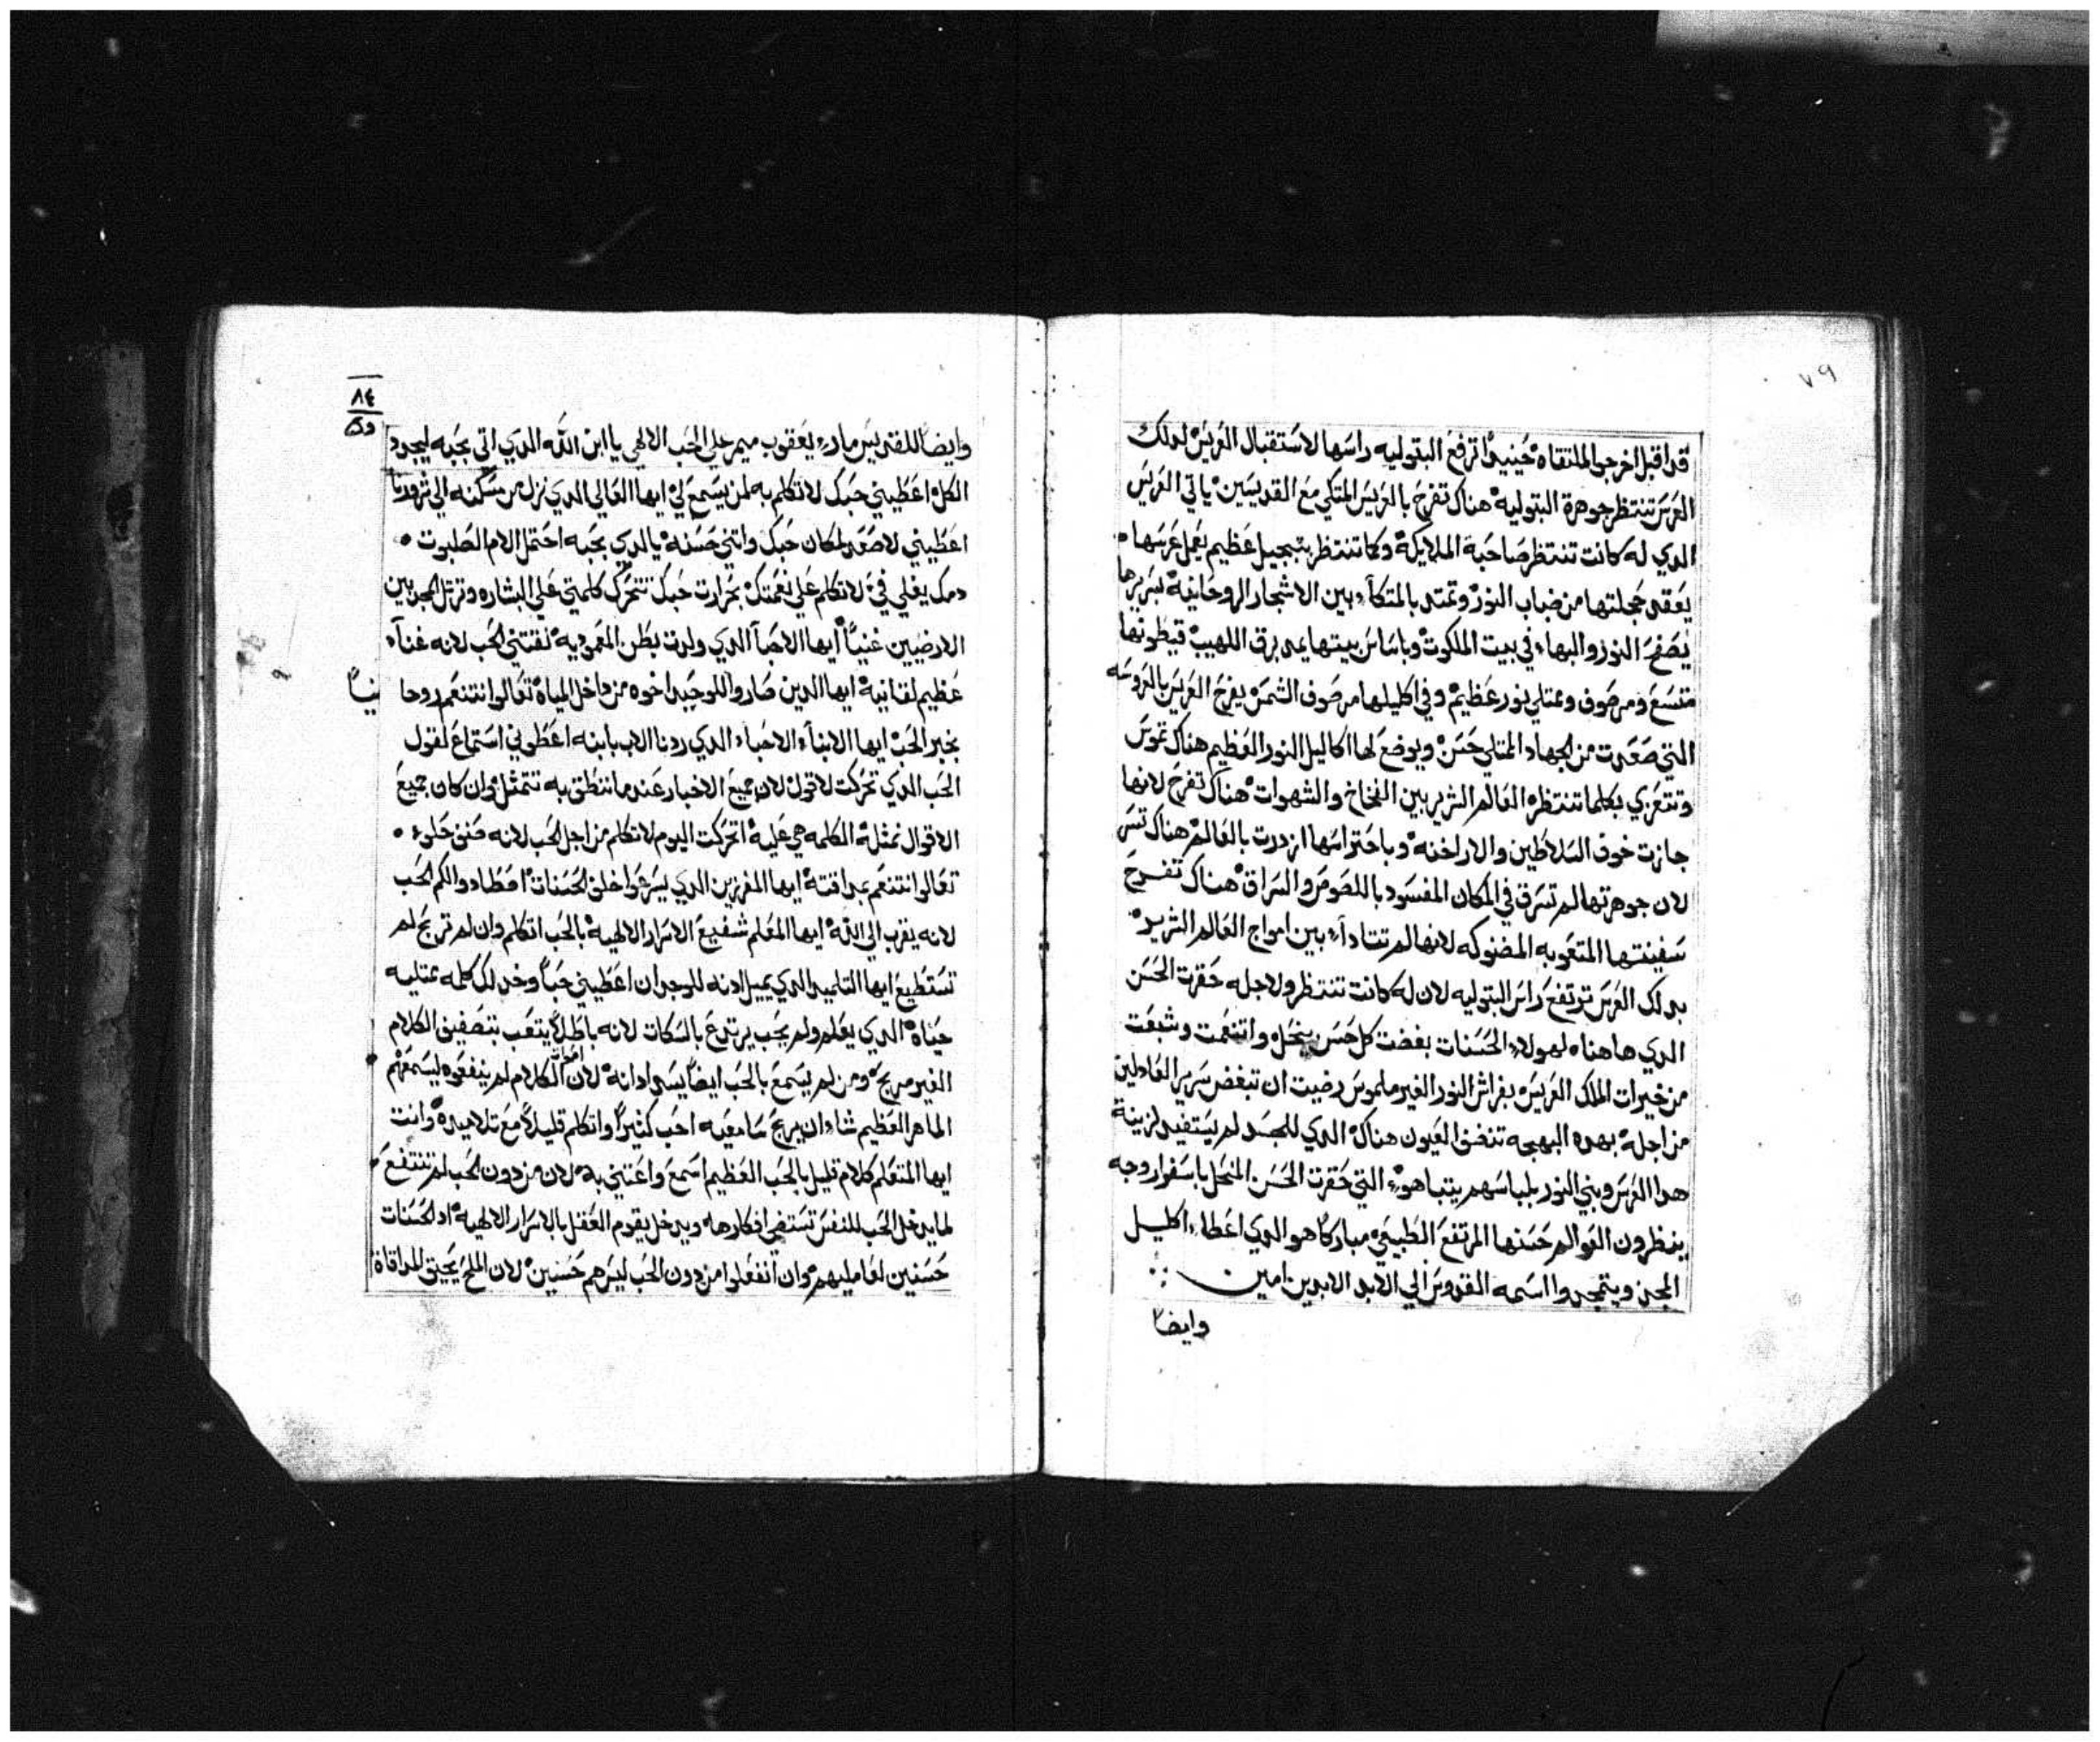 ٧٩
قد اقبل اخرجوا الملتقاه حينيدا ترفع البتوليه راسها لاستقبال العريس لدلك
العرس تنتظر جوهرة البتوليه هناك تفرح بالعريس المتكي مع القديسين ياتي العريس
الدي له كانت تنتظر صاحبة الملايكة وكما تنتظر بتبجيل عظيم يعمل عرسها
يعقد حجلتها من ضباب النور وتمتد بالمتكآء بين الاشجار الروحانية لسريرها
يصفح النور والبهاء في بيت الملكوت وباساس بيتها يمد برق اللهيب قيطونها
متسع ومرصوف وممتلي نور عظيم وفي اكليلها مرصوف الشمس يفرح العريس بالعروسه
التي صعدت من الجهاد الممتلي حسن ويوضع لها اكاليل النور العظيم هناك
وتتعزي بكلما تنتظره العالم الشرير بين الفخاخ والشهوات هناك تفرح لانها
جازت خوف السلاطين والاراخنه وباحتراسها ازدرت بالعالم هناك تسر
لان جوهرتها لم تسرق في المكان المفسود باللصوص والسراق هناك تفرح
سفينتها المتعوبه المضنوكه لانها لم تتادآء بين امواج العالم الشرير
بدلك العرس ترتفع راس البتوليه لان له كانت تنتظر ولاجله حقرت الحسن
الدي هاهنا لهولاء الحسنات بغضت كل حسن ينحل واتنعمت وشبعت
من خيرات الملك العريس بفراش النور الغير ملموس رضيت ان تبغض سرير العادلين
من اجله بهده البهجه تنغض العيون هناك الدي للجسد لم يستفيد لزينة
هدا العرس وبني النور بلباسهم يتباهوء التي حقرت الحسن المنحل باسفرار وجه
ينظرون العوالم حسنها المرتفع الطبيعي مباركا هو الدي اعطاء اكليل
المجد ويتمجدوا اسمه القدوس الي الابد الابدين امين
وايضا
٨٤
وايضا للقديس مارء يعقوب ميمر علي الحب الالهي يا ابن الله الدي اتي بحبه ليجدد
الكل اعطيني حبك لاتكلم به لمن يسمع لي ايها العالي الدي نزل من مسكنه الي
اعطيني لاصعد لمكان حبك واتني حسنه يالدي بحبه احتمل الام الصلبوت
دمك يغلي في لاتكلم علي نعمتك بحرارت حبك تتحرك كلمتي علي البشاره وترتل المجد بين
الارضيين غنيا ايها الاحبآ الدي ولدت بطن المعموديه لقنتني الحب لانه غنآء
عظيم لقنانية ايها الدين صاروا للوحيد اخوه من داخل المياه تعالوا نتنعم روحا
نيا
بخبر الحب ايها الابنآء الاحباء الدي ردنا الاب بابنه اعطوني استماع لقول
الحب الدي تحركت لاقول لان جميع الاخبار عندما ننطق به تتمثل وان كان جميع
الاقوال نمثل الكلمه هي عليه اتحركت اليوم لاتكلم من اجل الحب لانه حلوء
تعالوا نتنعم بمداقته ايها المفرزين الدي يسرعوا خلف الحسنات اصطادوا لكم الحب
لانه يقرب الي الله ايها المعلم شفيع الاسرار الالهية بالحب اتكلم وان لم تربح لم
تستطيع ايها التلميد الدي يميل ادنه للوجدان اعطيني حبا وخد لك كلمه ممتليه
حياه الدي يعلم ولم يحب يرتدع بالسكات لانه باطلا يتعب بتصفيف الكلام
الغير مربح ومن لم يسمع بالحب ايضا يسد ادانه لان الكلام لم ينفعوه ليسمعهم
الماهر العظيم شاء ان يربح سامعيه احب كثيرا واتكلم قليلا مع تلاميده وانت
ايها المتعلم كلام قليل بالحب العظيم اسمع واعتني به لان من دون الحب لم تنتفع
لما يدخل الحب للنفس تستضي افكارها ويدخل يقوم العقل بالاسرار الالهية او الحسنات
حسنين لعامليهم وان انفعلوا من دون الحب ليس هم حسنين لان الملح يحيق للمداقاة